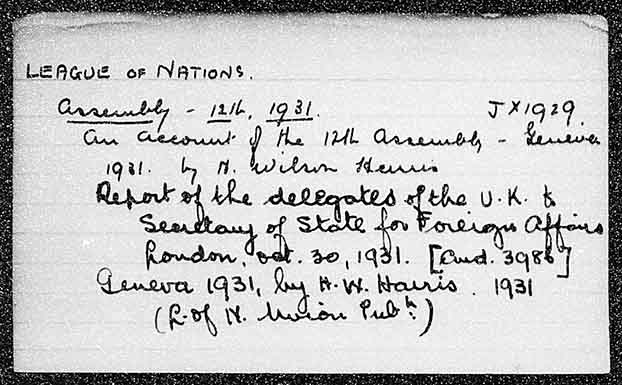 LEAGUE OF NATIONS.
Assembly - 12th, 1931. JX1929
An account of the 12th Assembly - Geneva
1931. by H. Wilson Harris
Report of the delegates of the U.K. to
Secretary of State for Foreign Affairs
London, Oct. 30, 1931. [Cmd. 3986]
Geneva 1931, by H.W. Harris. 1931
(L. of N. Union Pubn.)